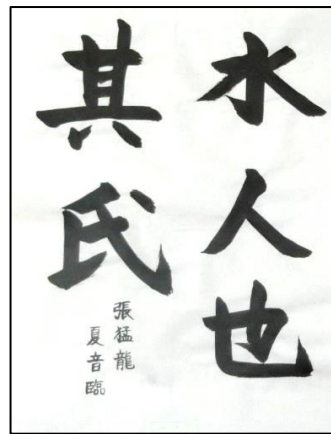 水人也
其氏
張猛龍
夏音臨